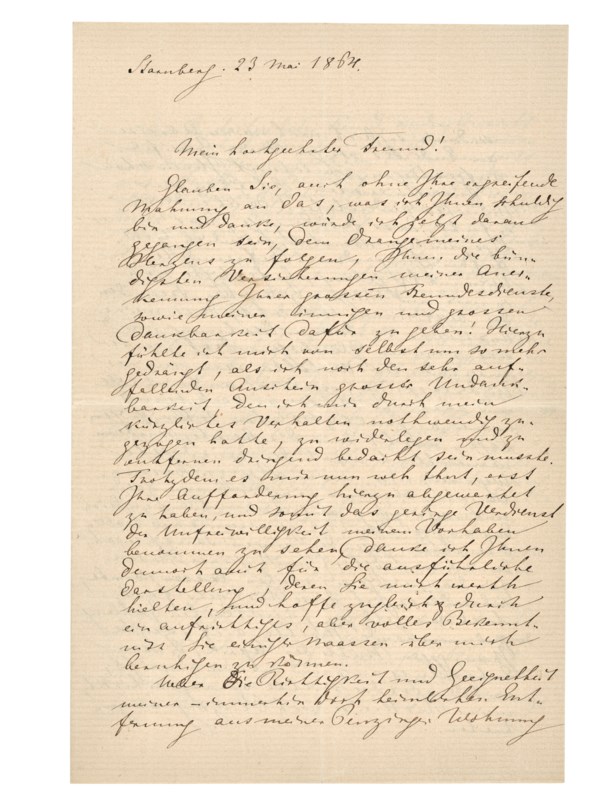 Starnberg. 23 Mai 1864.
Mein hochgeehrter Freund!
Glauben Sie, auch ohne Ihre ergreifende
Mahnung an das, was ich Ihnen schuldig
bin und danke, würde ich jetzt daran
gegangen sein, dem Drange meines
Herzens zu folgen, Ihnen die bün-
digsten Versicherungen meiner Aner-
kennung Ihrer grossen Freundesdienste,
sowie meiner innigen und grossen
Dankbarkeit dafür zu geben! Hierzu
fühlte ich mich von selbst um so mehr
gedrängt, als ich noch den sehr auf-
fallenden Anschein grosser Undank-
barkeit, den ich mir durch mein
kürzliches Verhalten nothwendig zu-
gezogen hatte, zu widerlegen und zu
entfernen dringend bedacht sein musste.
Trotzdem es mir nun weh thut, erst
Ihre Aufforderung hierzu abgewartet
zu haben, und somit das geringe Verdienst
der Unfreiwilligkeit meinem Vorhaben
benommen zu sehen, danke ich Ihnen
dennoch auch für die ausführliche
Darstellung, deren Sie mich werth
hielten, und hoffe zugleich durch
ein aufrichtiges, aber volles Bekennt-
niss Sie einiger Maassen über mich
beruhigen zu können.
Ueber die Richtigkeit und Geeignetheit
meiner – immerhin doch heimlichen Ent-
fernung aus meiner Penzinger Wohnung